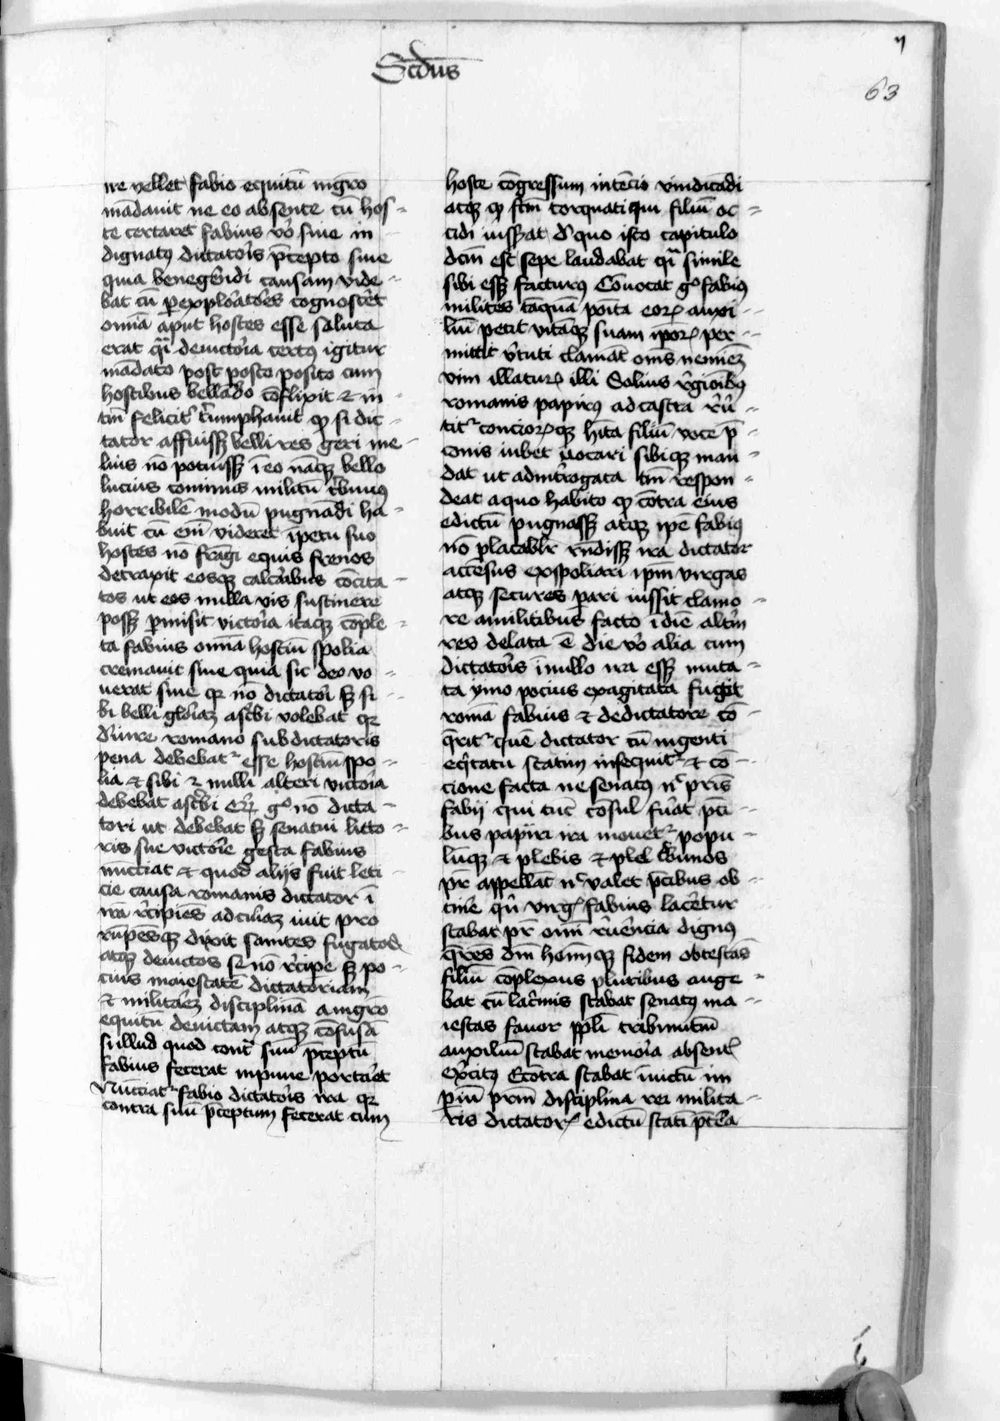 Scd̄us
63
ne vellet fabio equitū mgr̄o
mādauit ne eo absente cū hos
te certaret fabius vͦ siue in
dignatꝯ dictatoīs p̄cepto siue
quia bene ger̄di causam vide
bat cū p exploꝛatoēs cognosceēt
om̄ia aput hostes esse soluta
erat qͥ deuictoīa certꝯ igitur
mādato post posto posito cum
hostibus bellādo cōflixit et in
tm̄ felicitᷣ tͥumphauit ꝙ si dic
tator affuissꝫ belli res geri me
lius nō potuissꝫ ī eo nāqꝫ bello
lucius cominius militū tͥbunꝯ
horribilē modū pugnādi ha
buit cū em̄ videret īpetū suo
hostes nō frāgi equis frenos
detraxit eosqꝫ calcaībus cōcita
tos ut eos nulla vis sustinere
possꝫ ꝑmisit victoīa itaqꝫ cōple
ta fabius om̄ia hostiū spolia
cremauit siue quia sic deo vo
uerat siue qꝛ nō dictatoī sꝫ si
bi belli gloīaꝫ ascͥbi volebat qꝛ
d̓ iure romano sub dictatoris
pena debebatᷣ esse hostiū spo
lia et sibi et nulli alteri victoīa
debebat ascͥbi gͦ nō dicta
tori ut debebat sꝫ senatui litto
ris sue victoīe gesta fabius
nūcciat et quod alijs fuit leti
cie causa romanis dictator ī
irā rͨipiēs ad cūaꝫ iuit pro
rūpēsqꝫ dixit samites fugatos
atqꝫ deuictos se nō rͨipe sꝫ po
cius maiestatē dictatoriam
et militaēꝫ disciplinā a mgr̄o
equitū deuictam atqꝫ cōfusā
si illud quod contͣ suū p̄ceptū
fabius fecerat inpune portaēt
Nūcciatᷣ fabio dictatoīs ira qꝛ
contra suū p̄ceptum fecerat cum
hoste cōgressum intēcio vindicādi
atqꝫ ꝙ fcm̄ torquati qui filiū oc
cidi iussꝫat d̓ quo isto capitulo
dcm̄ est sepe laudabat qͥ simile
sibi essꝫ facturꝯ Cōuocat gͦ fabiꝯ
milites tāquā poīta eoꝝ auxi
liū petit vitāqꝫ suam ip̄oꝝ per
mittit vͥtuti clamāt om̄s neminēꝫ
vim illaturꝝ illi Solius rͨgioībꝯ
romanis papirꝯ ad castra
titᷣ concioꝝqꝫ hita filiū voce p̄
conis iubet uocari sibiqꝫ man
dat ut ad int̓rogata tm̄ respon
deat a quo habito ꝙ cōtra eius
edictū pugnassꝫ atqꝫ ip̄e fabiꝯ
nō placabilr̄ rn̄dissꝫ ira dictator
accēsus exspoliari ip̄m virgas
atqꝫ secures ꝑari iussit clamo
re a militibus facto ī diē altm̄
res delata ē die vͦ alia cum
dictatoīs ī nullo ira essꝫ muta
ta ymo pocius exagitata fugit
romā fabius et de dictatore cō
qͥritᷣ quē dictator cū ingenti
eqͥtatu statim insequitᷣ et cō
cione facta ne senatꝯ nͨ pr̄is
fabij qui tūc cōsul fūat p̄ci
bus papiri ira mouetᷣ popu
lūqꝫ et plebis et plebͥ tͥbunos
pr̄ appellāt nͨ valet p̄cibus ob
tinēe qn̄ virgͥ fabius laceētur
stabat pr̄ om̄i rūēncia dignꝯ
qͥrēs dm̄ homīqꝫ fidem obtestās
filiū cōplexus pluribus auge
bat cū lacͥmis stabat senatꝯ ma
iestas fauor ppl̄i tribunitiū
auxiliū stabat memoīa absentͥ
exͨcitꝯ Ecōtra stabat īuictū im
piū pr̄m disciplina rei milita
ris dictatorͥ edictū stati p̄cela